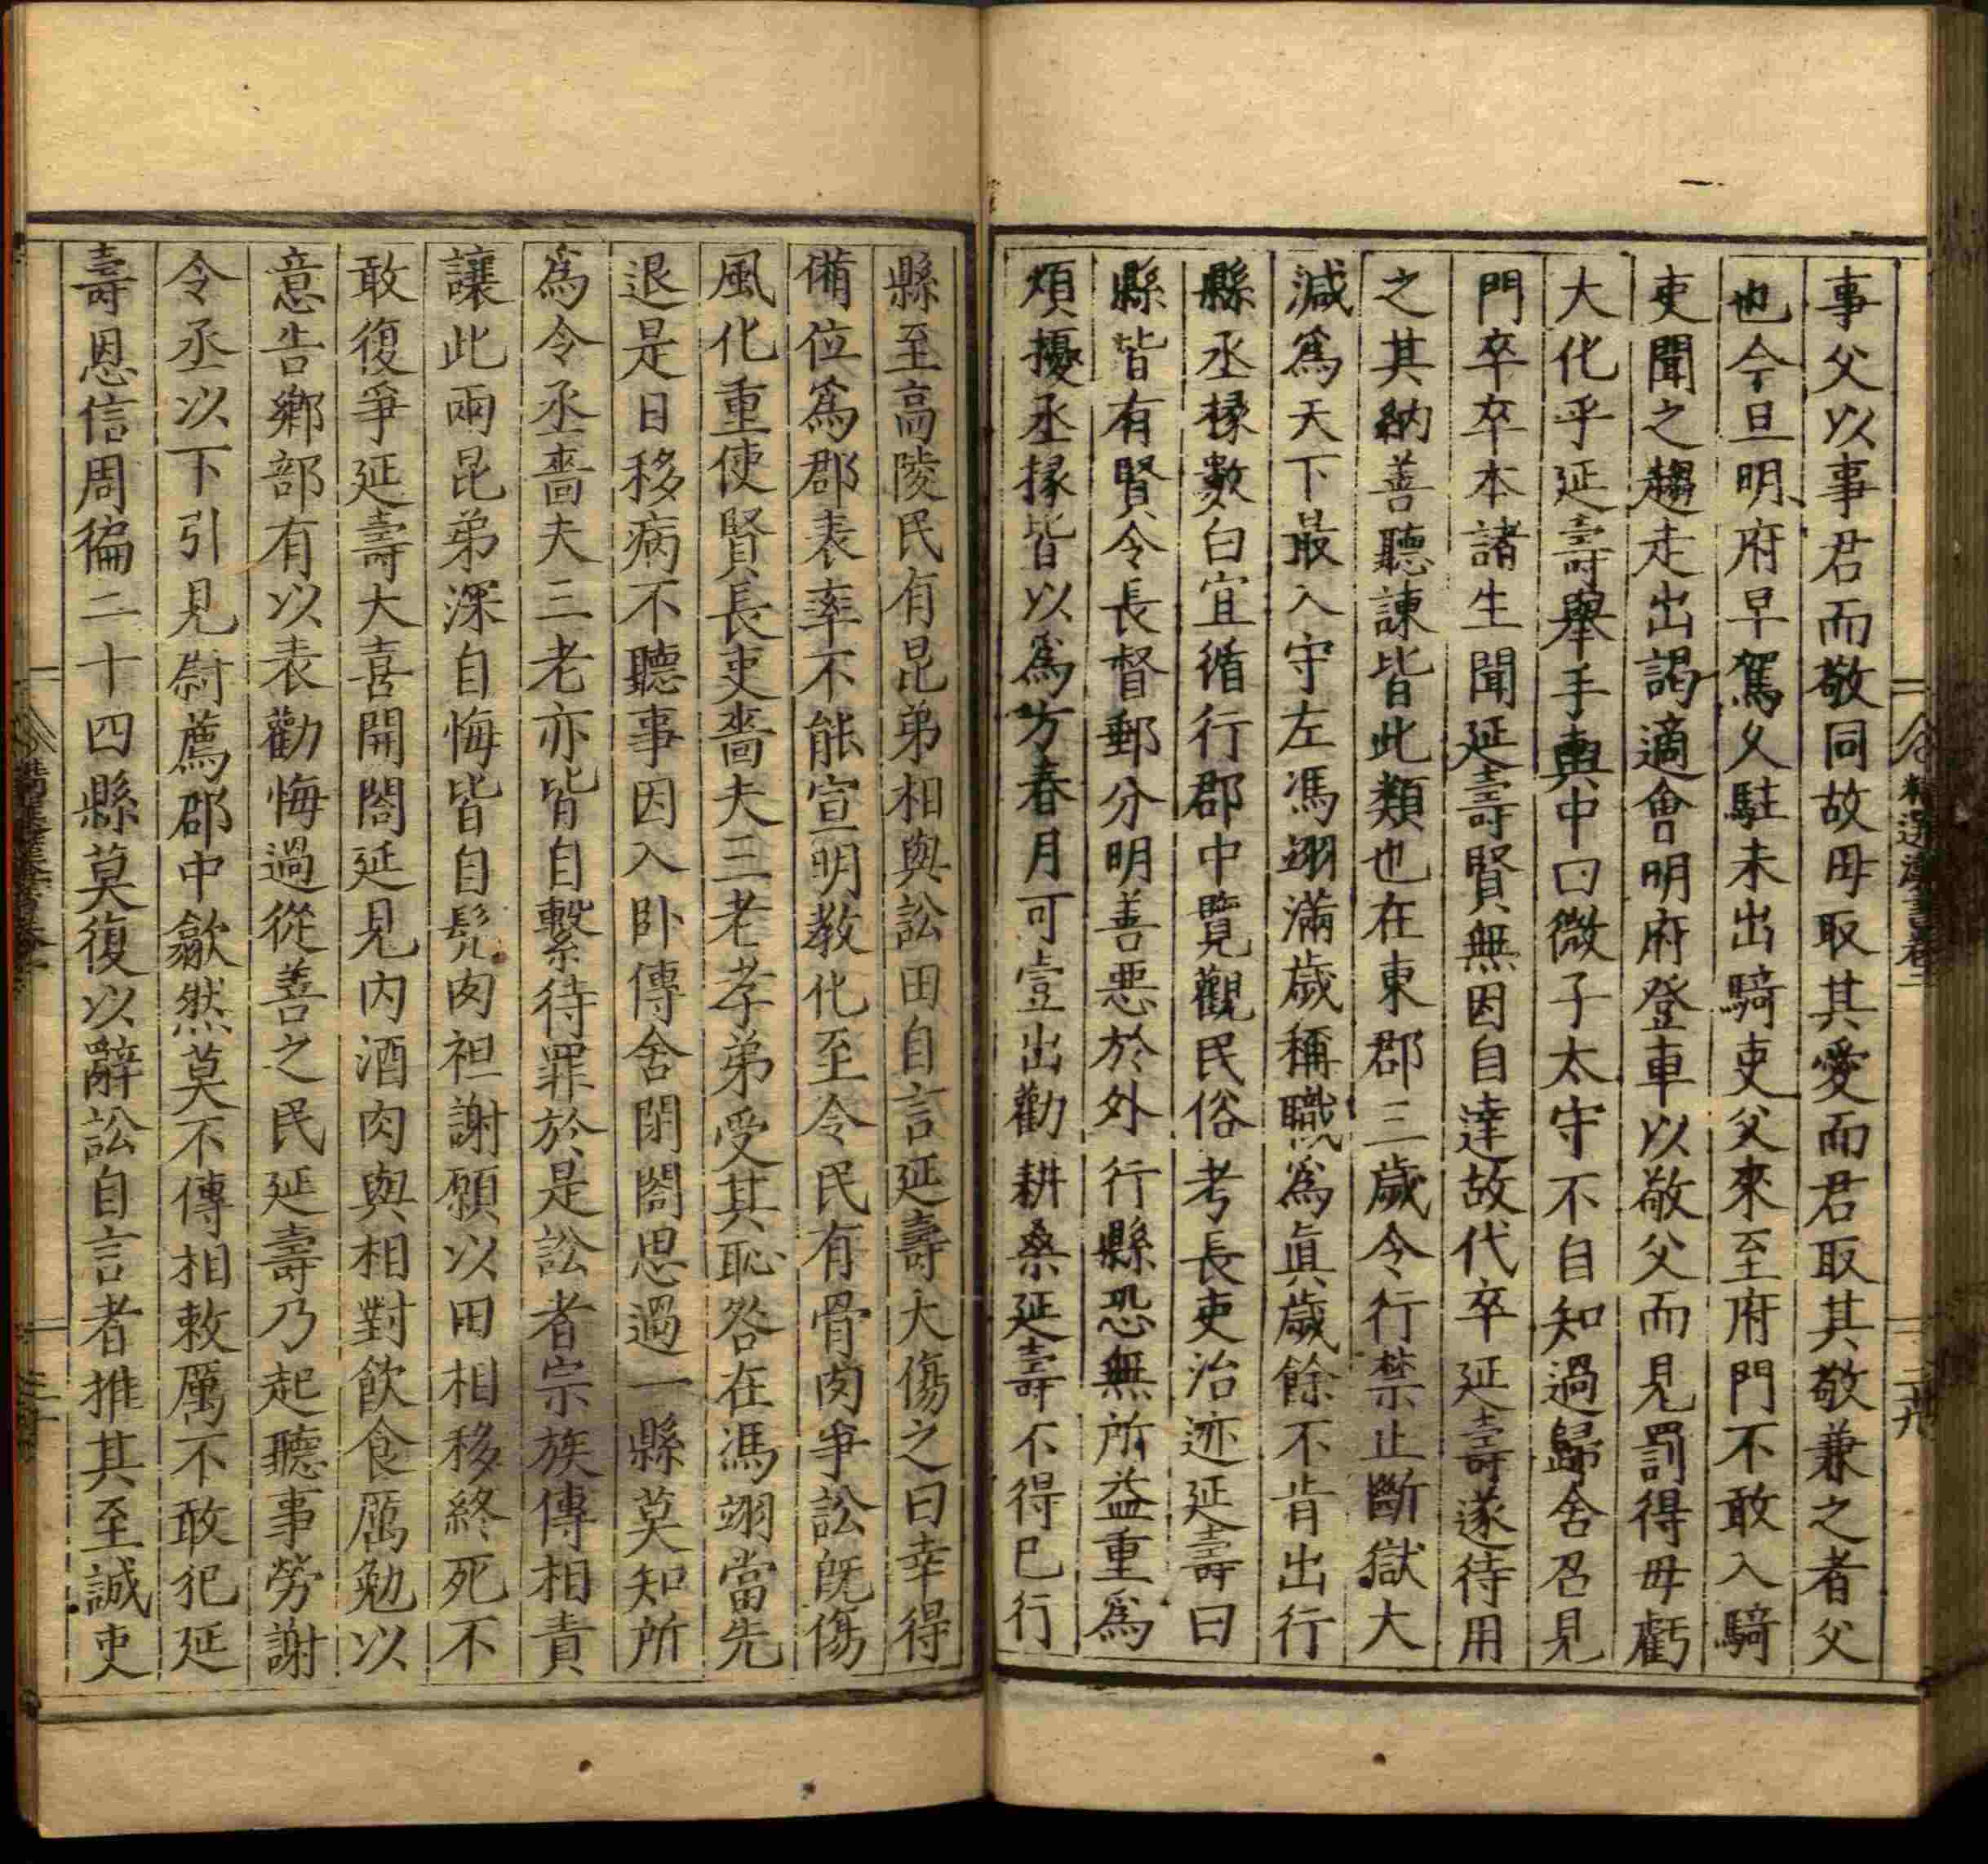 事父以事君而敬同故母取其愛而君取其敬兼之者父
也今旦明府早駕久駐未出騎吏父來至府門不敢入騎
吏聞之趨走出謁適會明府登車以敬父而見罰得毋虧
大化乎延壽舉手輿中曰微子太守不自知過歸舍召見
門卒卒本諸生聞延壽賢無因自達故代卒延壽遂待用
之其納善聽諫皆此類也在東郡三歲令行禁止斷獄大
減爲天下最入守左馮翊滿歲稱職爲真歲餘不肯出行
縣丞掾數白宜循行郡中覽觀民俗考長吏治迹延壽曰
縣皆有賢令長督郵分明善惡於外行縣恐無所益重爲
煩擾丞掾皆以爲方春月可壹出勸耕桑延壽不得已行
縣至高陵民有昆弟相與訟田自言延壽大傷之曰幸得
備位爲郡表率不能宣明教化至令民有骨肉爭訟既傷
風化重使賢長吏嗇夫三老孝弟受其恥咎在馮翊當先
退是日移病不聽事因入臥傳舍閉閤思過一縣莫知所
爲令丞嗇夫三老亦皆自繫待罪於是訟者宗族傳相責
讓此兩昆弟深自悔皆自髡肉袒謝願以田相移終死不
敢復爭延壽大喜開閤延見內酒肉與相對飲食厲勉以
意告鄉部有以表勸悔過從善之民延壽乃起聽事勞謝
令丞以下引見尉薦郡中歙然莫不傳相敕厲不敢犯延
壽恩信周徧二十四縣莫復以辭訟自言者推其至誠吏